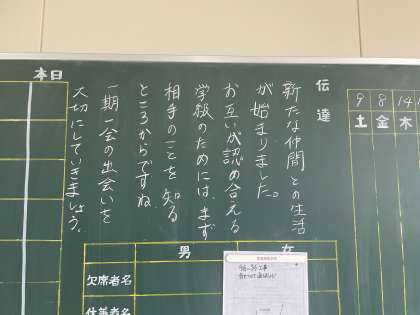 伝達
新たな仲間との生活
が始まりました。
お互いが認め合える
学級のためには、まず
相手のことを知る
ところからですね。
一期一会の出会いを
大切にしていきましょう。
本日
9 8
土 金 木
男 女
欠席者名